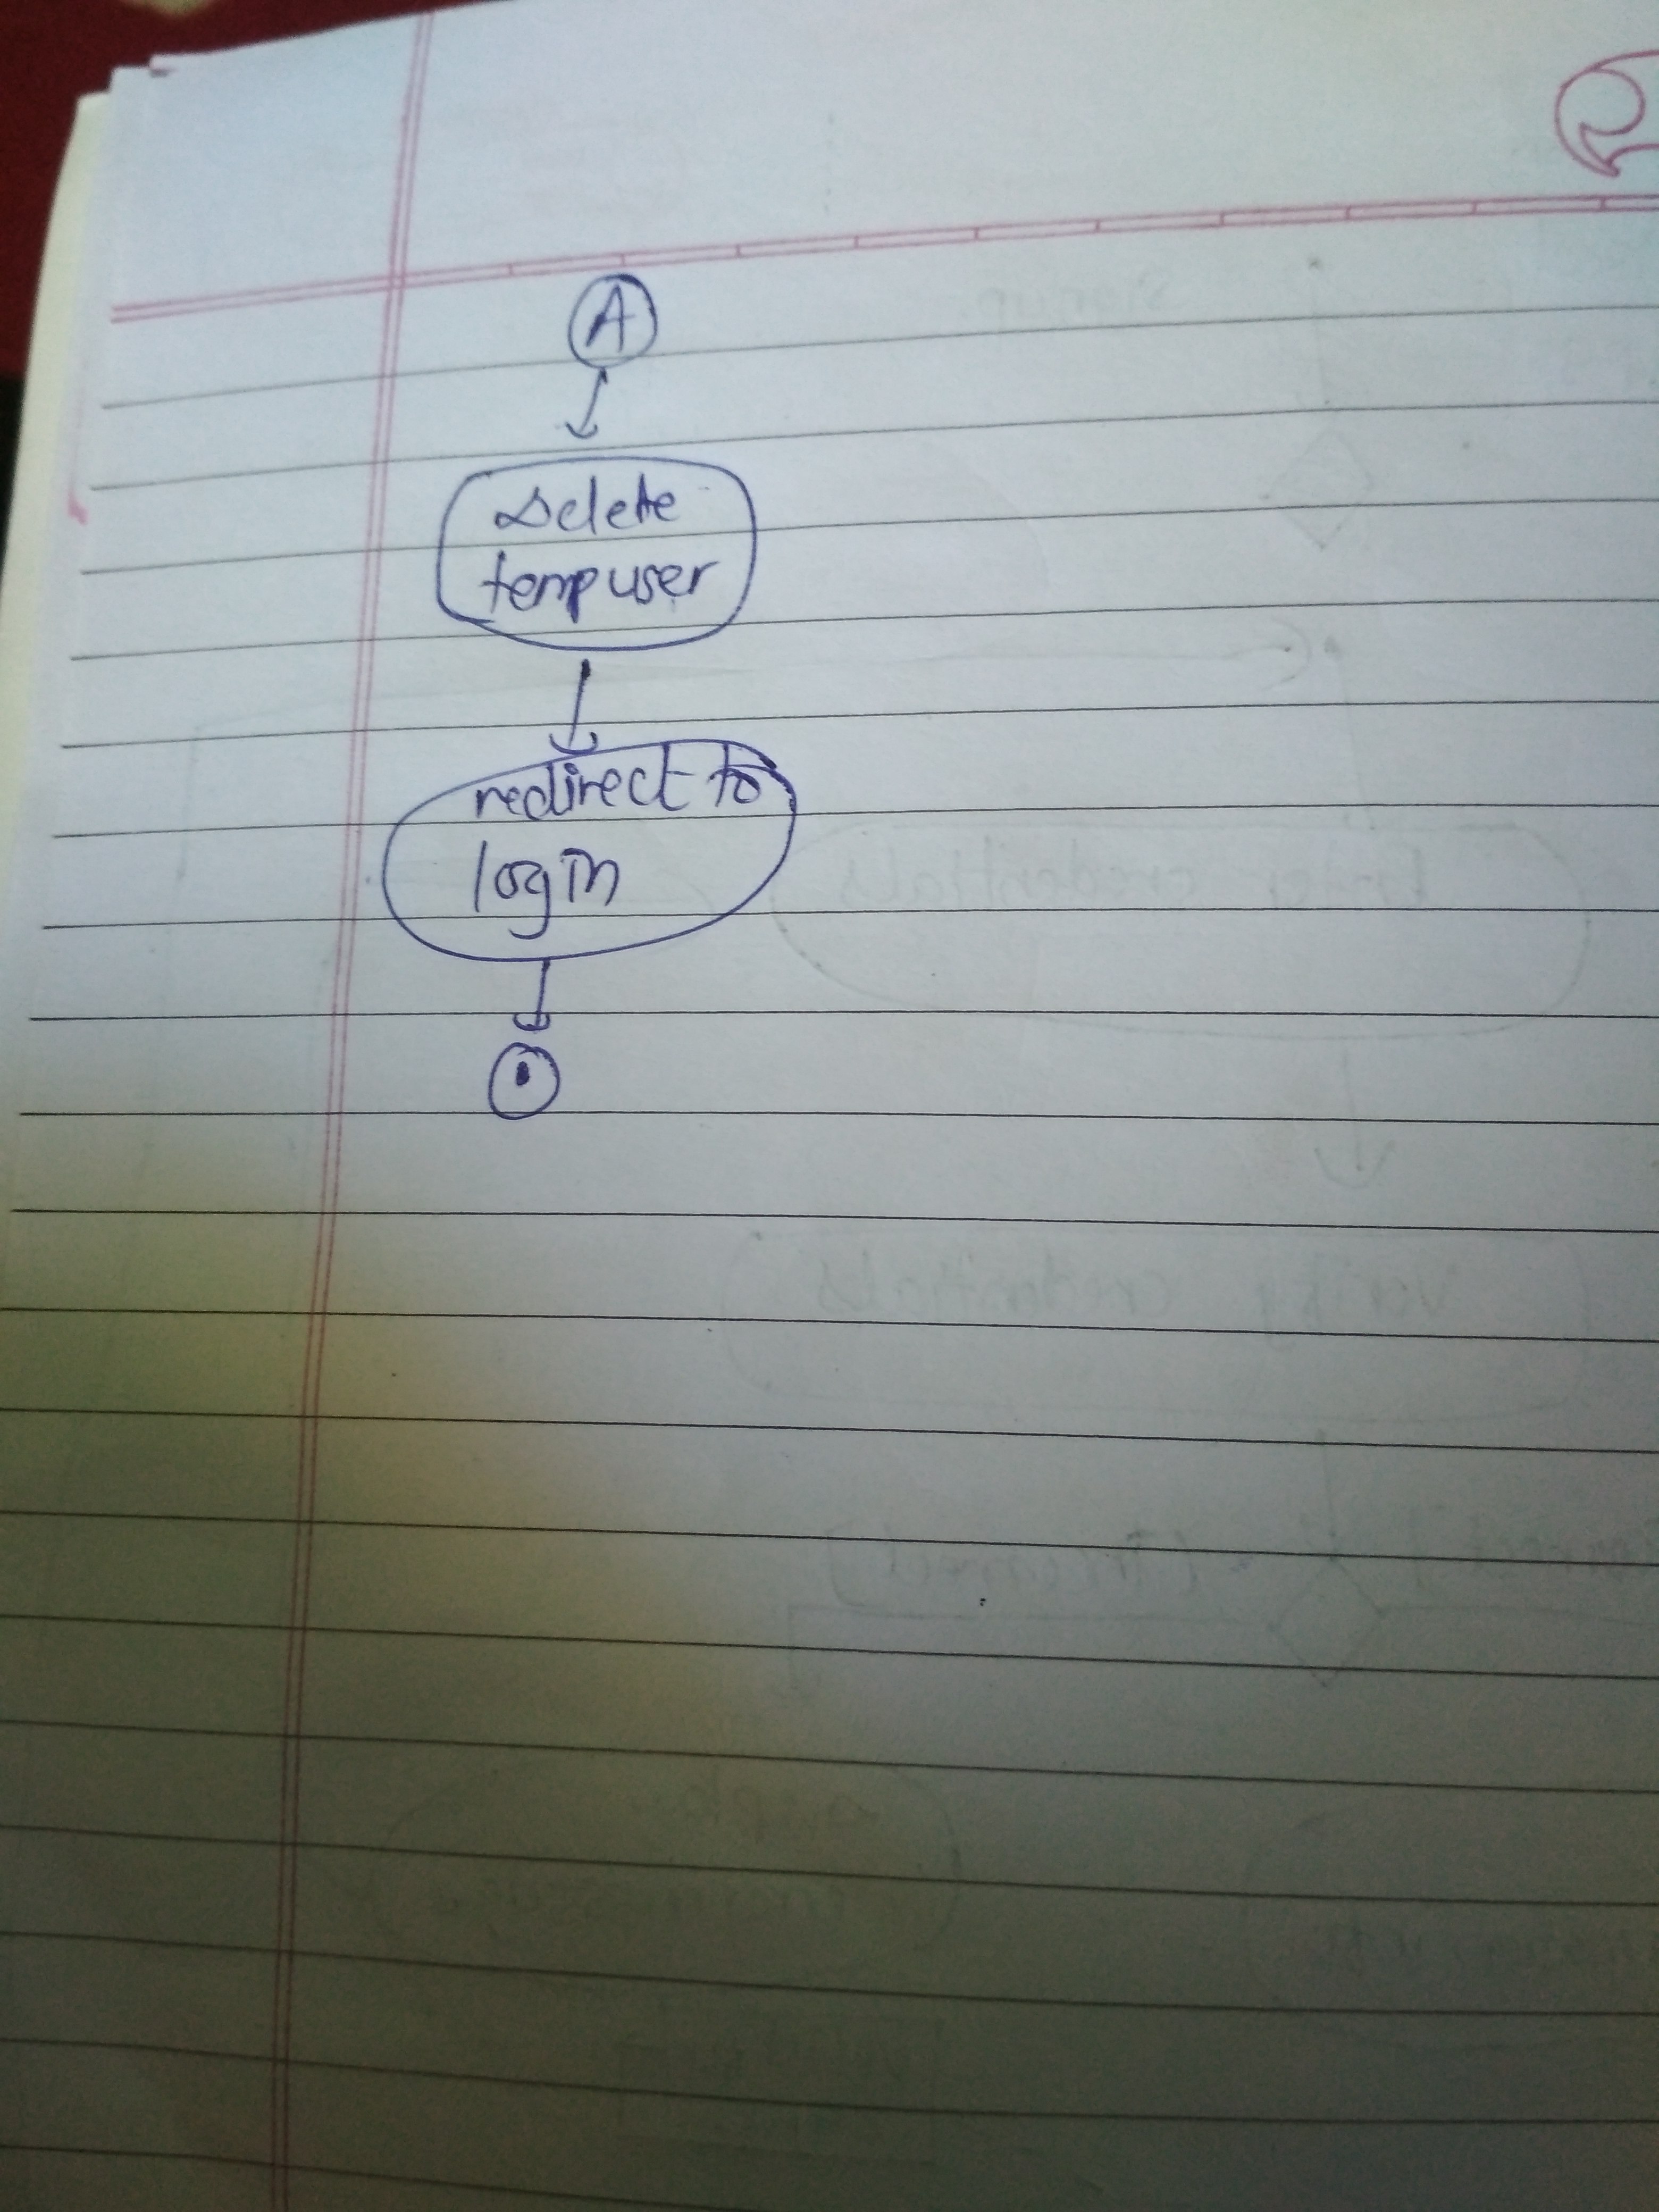 A
Delete
temp user
redirect to
login